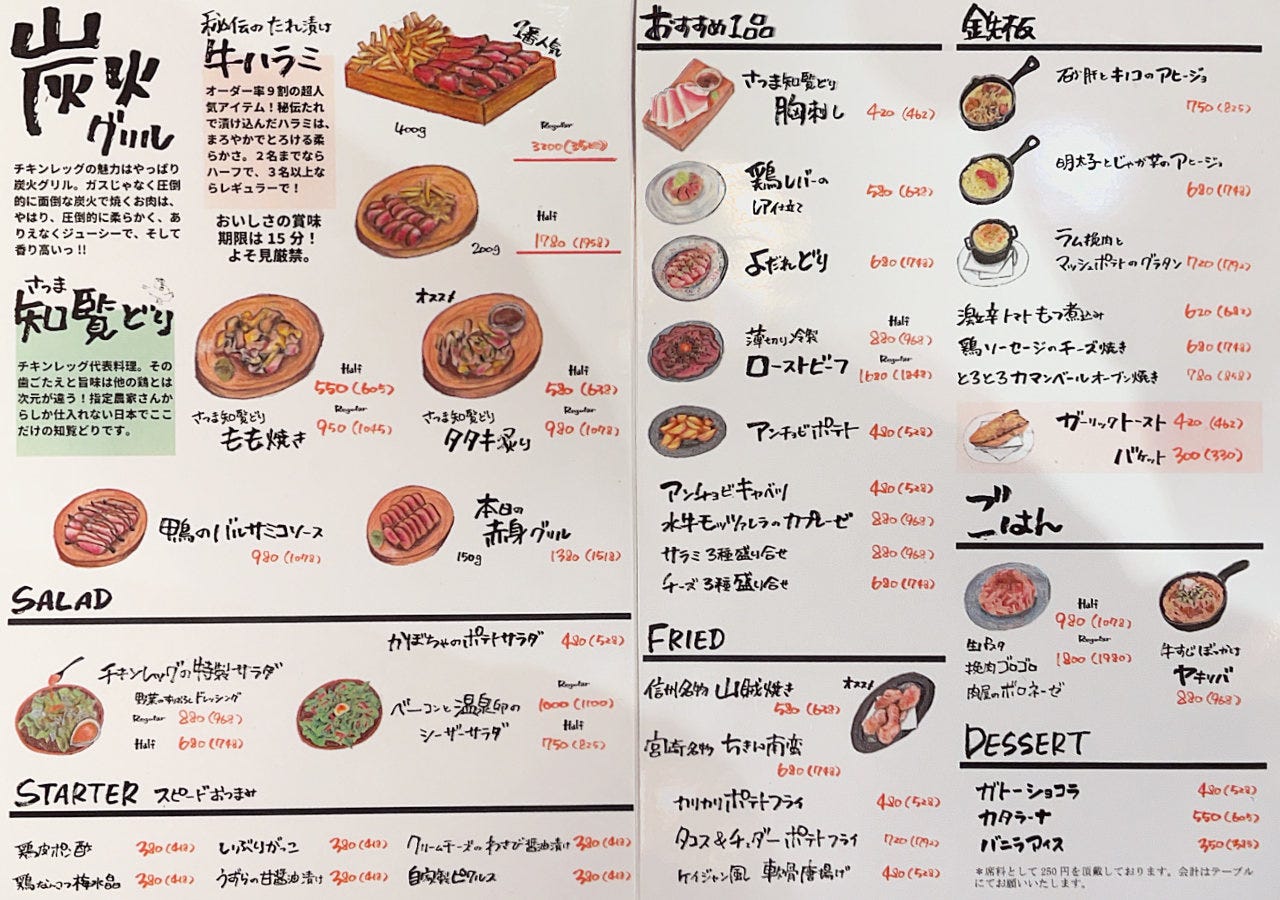 炭火
グリル
チキンレッグの魅力はやっぱり
炭火グリル。ガスじゃなく圧倒
的に面倒な炭火で焼くお肉は、
やはり、圧倒的に柔らかく、あ
りえなくジューシーで、そして
香り高いっ!!
秘伝のたれ漬け
牛ハラミ
オーダー率9割の超人
気アイテム！秘伝たれ
で漬け込んだハラミは、
まろやかでとろける柔
らかさ。2名までなら
ハーフで、3名以上な
らレギュラーで！
おいしさの賞味
期限は15分！
よそ見厳禁。
1番人気
400g
Regular
3200(3520)
200g
Half
1780(1958)
さつま
知覧どり
チキンレッグ代表料理。その
歯ごたえと旨味は他の鶏とは
次元が違う！指定農家さんか
らしか仕入れない日本でここ
だけの知覧どりです。
Half
550(605)
Regular
950(1045)
さつま知覧どり
もも焼き
オススメ
Half
580(638)
Regular
980(1078)
さつま知覧どり
タタキ炙り
鴨のバルサミコソース
980(1078)
本日の
赤身グリル
150g
1380(1518)
SALAD
かぼちゃのポテトサラダ 480(528)
チキンレッグの特製サラダ
野菜のすりおろしドレッシング
Regular 880(968)
Half 680(748)
ベーコンと温泉卵の
シーザーサラダ
Regular
1000(1100)
Half
750(825)
STARTER スピードおつまみ
鶏皮ポン酢 380(418)
いぶりがっこ 380(418)
クリームチーズのわさび醤油漬け 380(418)
鶏なんこつ梅水晶 380(418)
うずらの甘醤油漬け 380(418)
自家製ピクルス 380(418)
おすすめ1品
さつま知覧どり
胸刺し 420(462)
鶏レバーの
レア仕立て
580(638)
よだれどり 680(748)
薄切り冷製
ローストビーフ
Half
880(968)
Regular
1680(1848)
アンチョビポテト 480(528)
アンチョビキャベツ 480(528)
水牛モッツァレラのカプレーゼ 880(968)
サラミ3種盛り合せ 880(968)
チーズ3種盛り合せ 680(748)
FRIED
信州名物 山賊焼き
580(638)
オススメ
宮崎名物 ちきん南蛮
680(748)
カリカリポテトフライ 480(528)
タコス&チェダーポテトフライ 720(792)
ケイジャン風 軟骨唐揚げ 480(528)
鉄板
砂肝とキノコのアヒージョ
750(825)
明太子とじゃが芋のアヒージョ
680(748)
ラム挽肉と
マッシュポテトのグラタン 720(792)
激辛トマトもつ煮込み 620(682)
鶏ソーセージのチーズ焼き 680(748)
とろとろカマンベールオーブン焼き 780(858)
ガーリックトースト 420(462)
バケット 300(330)
ごはん
Half
980(1078)
Regular
1800(1980)
生パスタ
挽肉ゴロゴロ
肉屋のボロネーゼ
牛すじぼっかけ
ヤキリバ
880(968)
DESSERT
ガトーショコラ 480(528)
カタラーナ 550(605)
バニラアイス 350(385)
＊席料として250円を頂戴しております。会計はテーブル
にてお願いいたします。